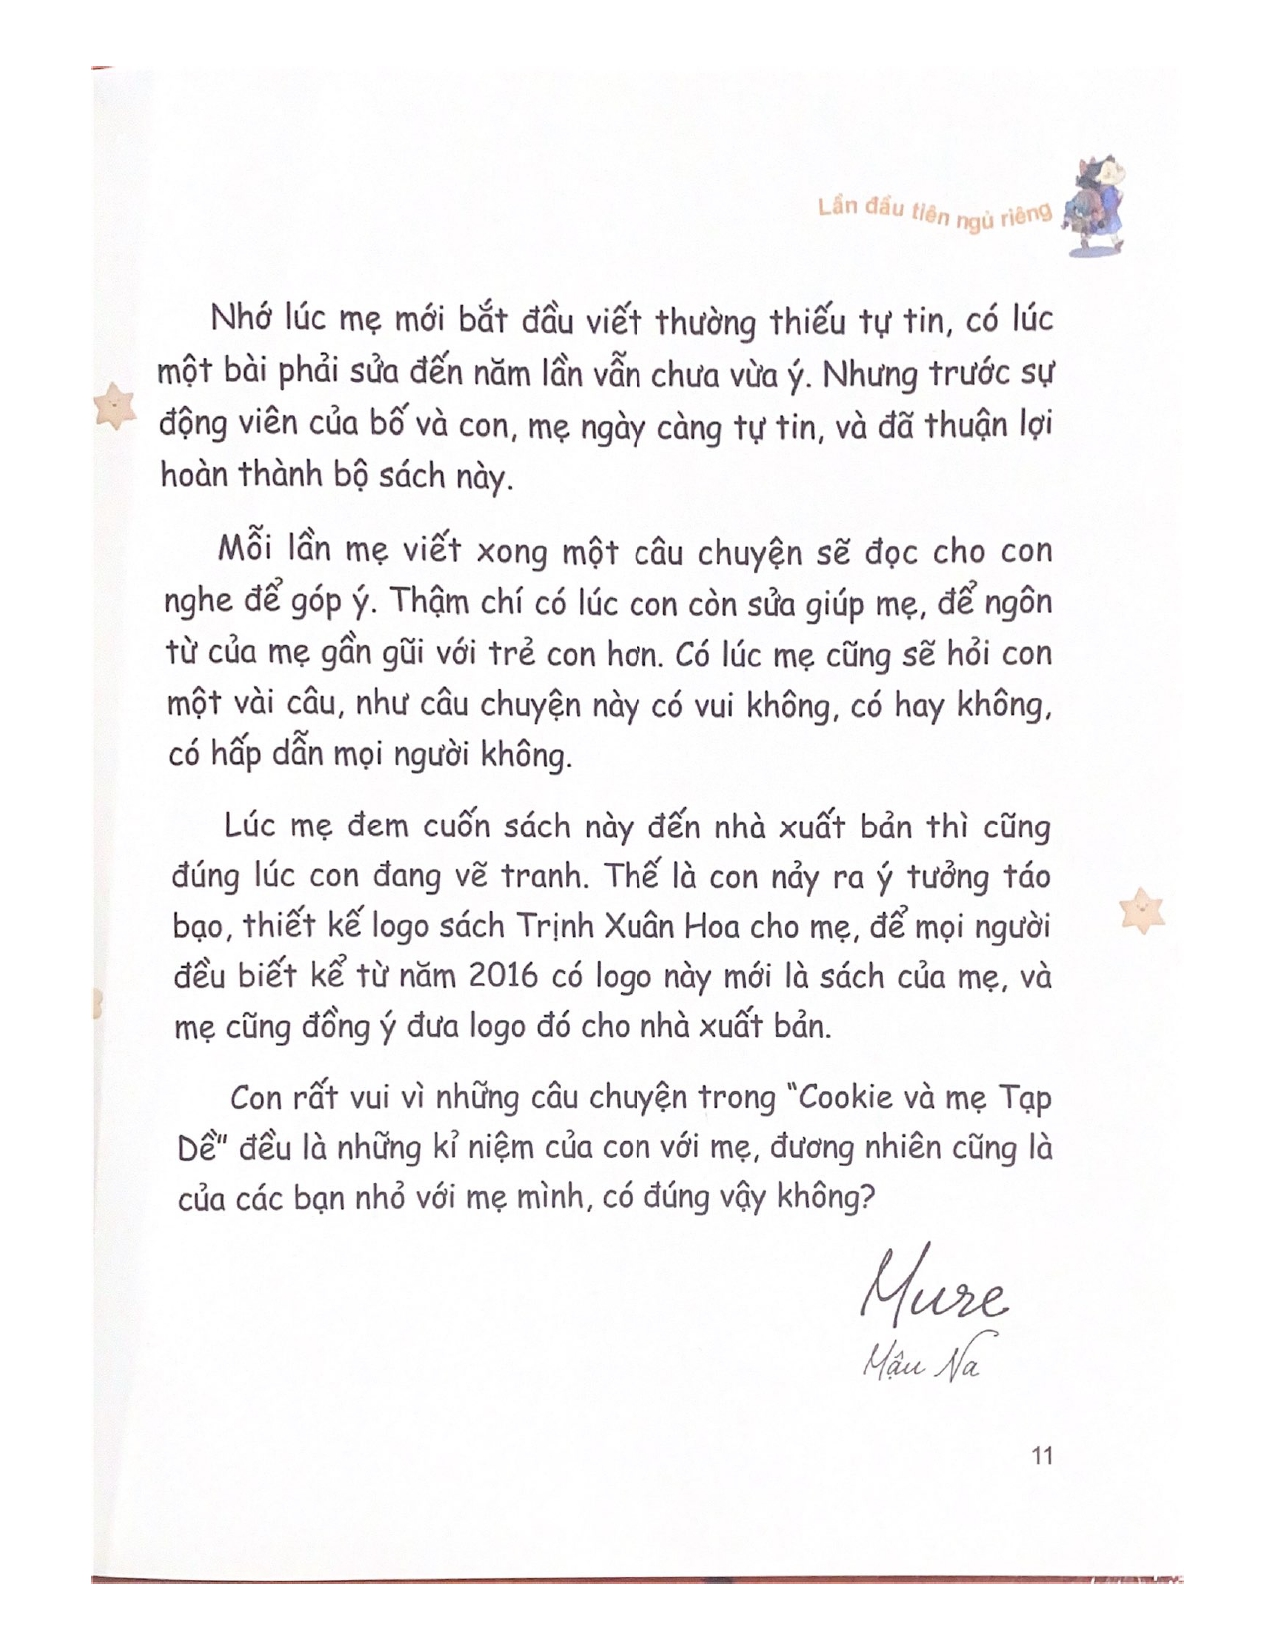 Lần đầu tiên ngủ riêng
Nhớ lúc mẹ mới bắt đầu viết thường thiếu tự tin, có lúc
một bài phải sửa đến năm lần vẫn chưa vừa ý. Nhưng trước sự
động viên của bố và con, mẹ ngày càng tự tin, và đã thuận lợi
hoàn thành bộ sách này.
Mỗi lần mẹ viết xong một câu chuyện sẽ đọc cho con
nghe để góp ý. Thậm chí có lúc con còn sửa giúp mẹ, để ngôn
từ của mẹ gần gũi với trẻ con hơn. Có lúc mẹ cũng sẽ hỏi con
một vài câu, như câu chuyện này có vui không, có hay không,
có hấp dẫn mọi người không.
Lúc mẹ đem cuốn sách này đến nhà xuất bản thì cũng
đúng lúc con đang vẽ tranh. Thế là con nảy ra ý tưởng táo
bạo, thiết kế logo sách Trịnh Xuân Hoa cho mẹ, để mọi người
đều biết kể từ năm 2016 có logo này mới là sách của mẹ, và
mẹ cũng đồng ý đưa logo đó cho nhà xuất bản.
Con rất vui vì những câu chuyện trong "Cookie và mẹ Tạp
Dề" đều là những kỉ niệm của con với mẹ, đương nhiên cũng là
của các bạn nhỏ với mẹ mình, có đúng vậy không?
Mure
Mậu Na
11